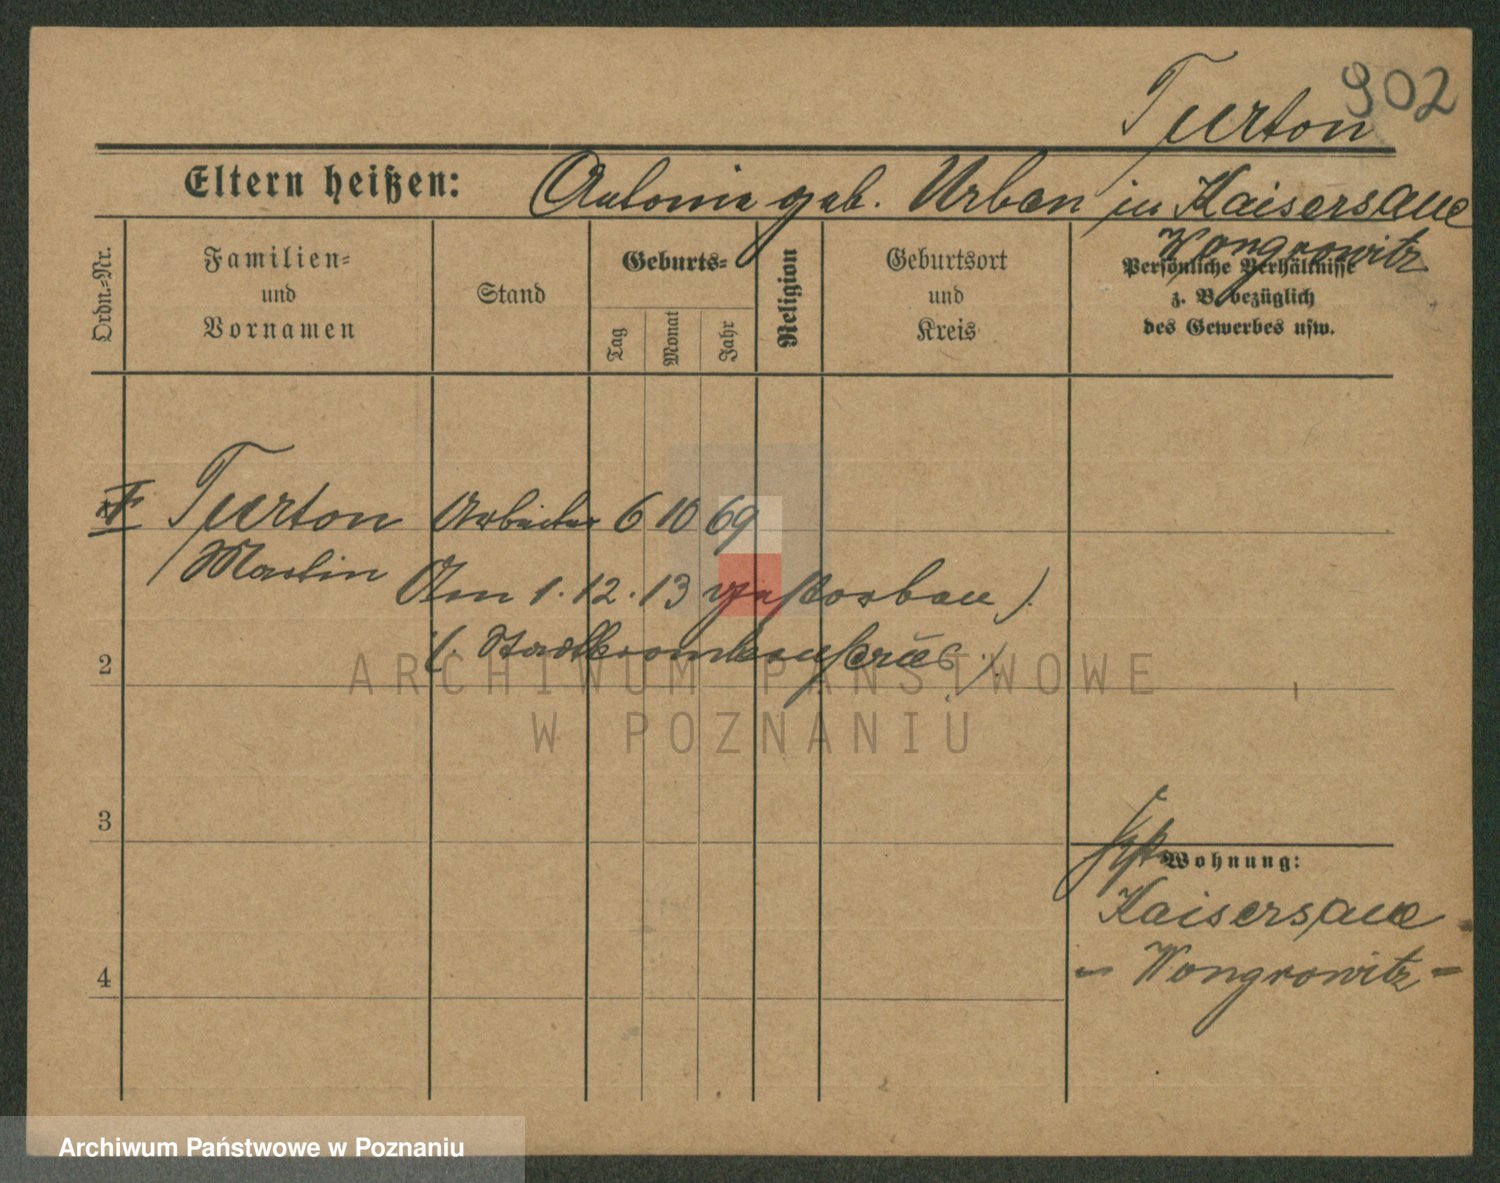 902
Turton
Eltern heißen: Antonie geb. Urban in Kaisersaue
Wongrowitz
Ordn.-Nr.
Familien-
und
Vornamen
Stand
Geburts-
Tag
Monat
Jahr
Religion
Geburtsort
und
Kreis
Persönliche Verhältnisse
z. B. bezüglich
des Gewerbes usw.
Turton Arbeiter 6 10 69
Martin Am 1. 12. 13 gestorben).
(. Stadtkrankenhaus .)
2
3
4
Wohnung:
Kaisersaue
Wongrowitz
ARCHIWUM PAŃSTWOWE
W POZNANIU
Archiwum Państwowe w Poznaniu